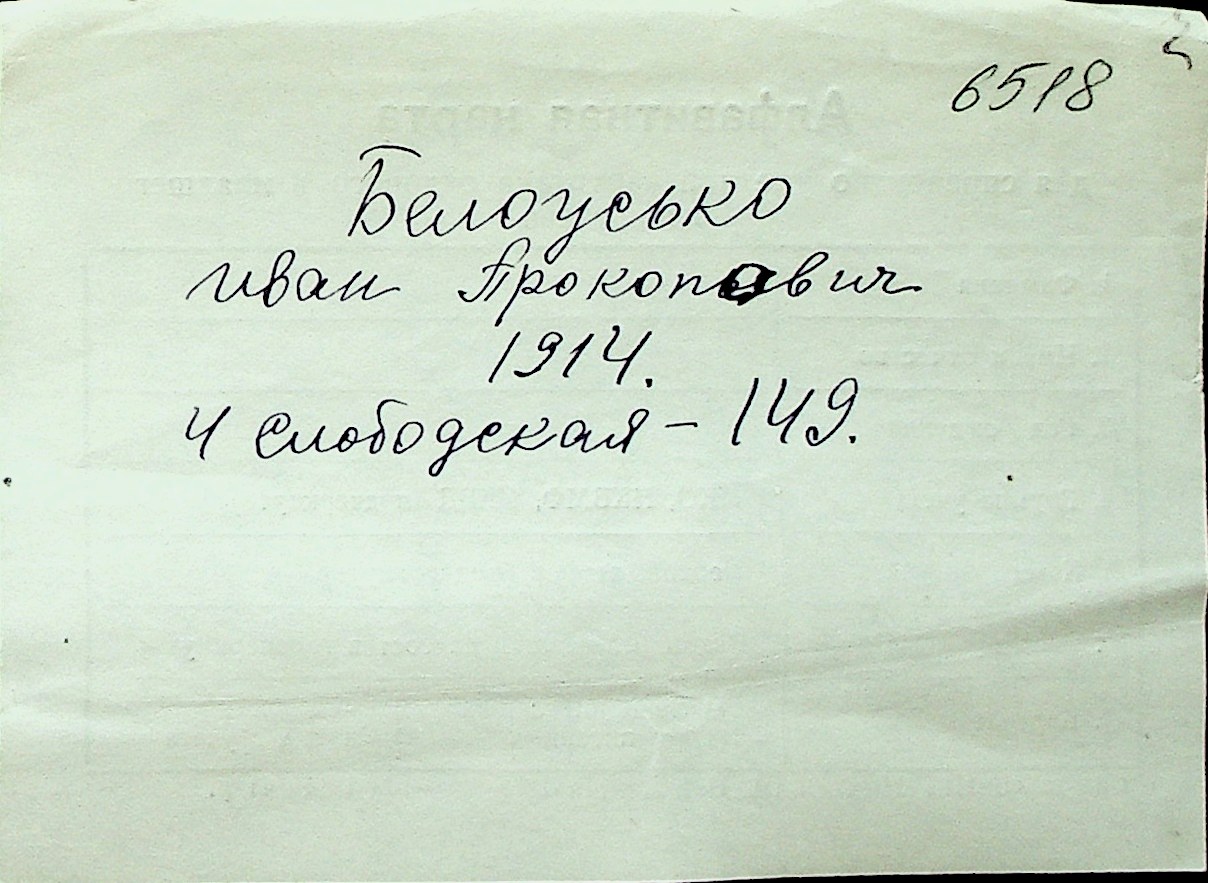 6518
Белоусько
Иван Прокопович
1914.
4 Слободская – 149.